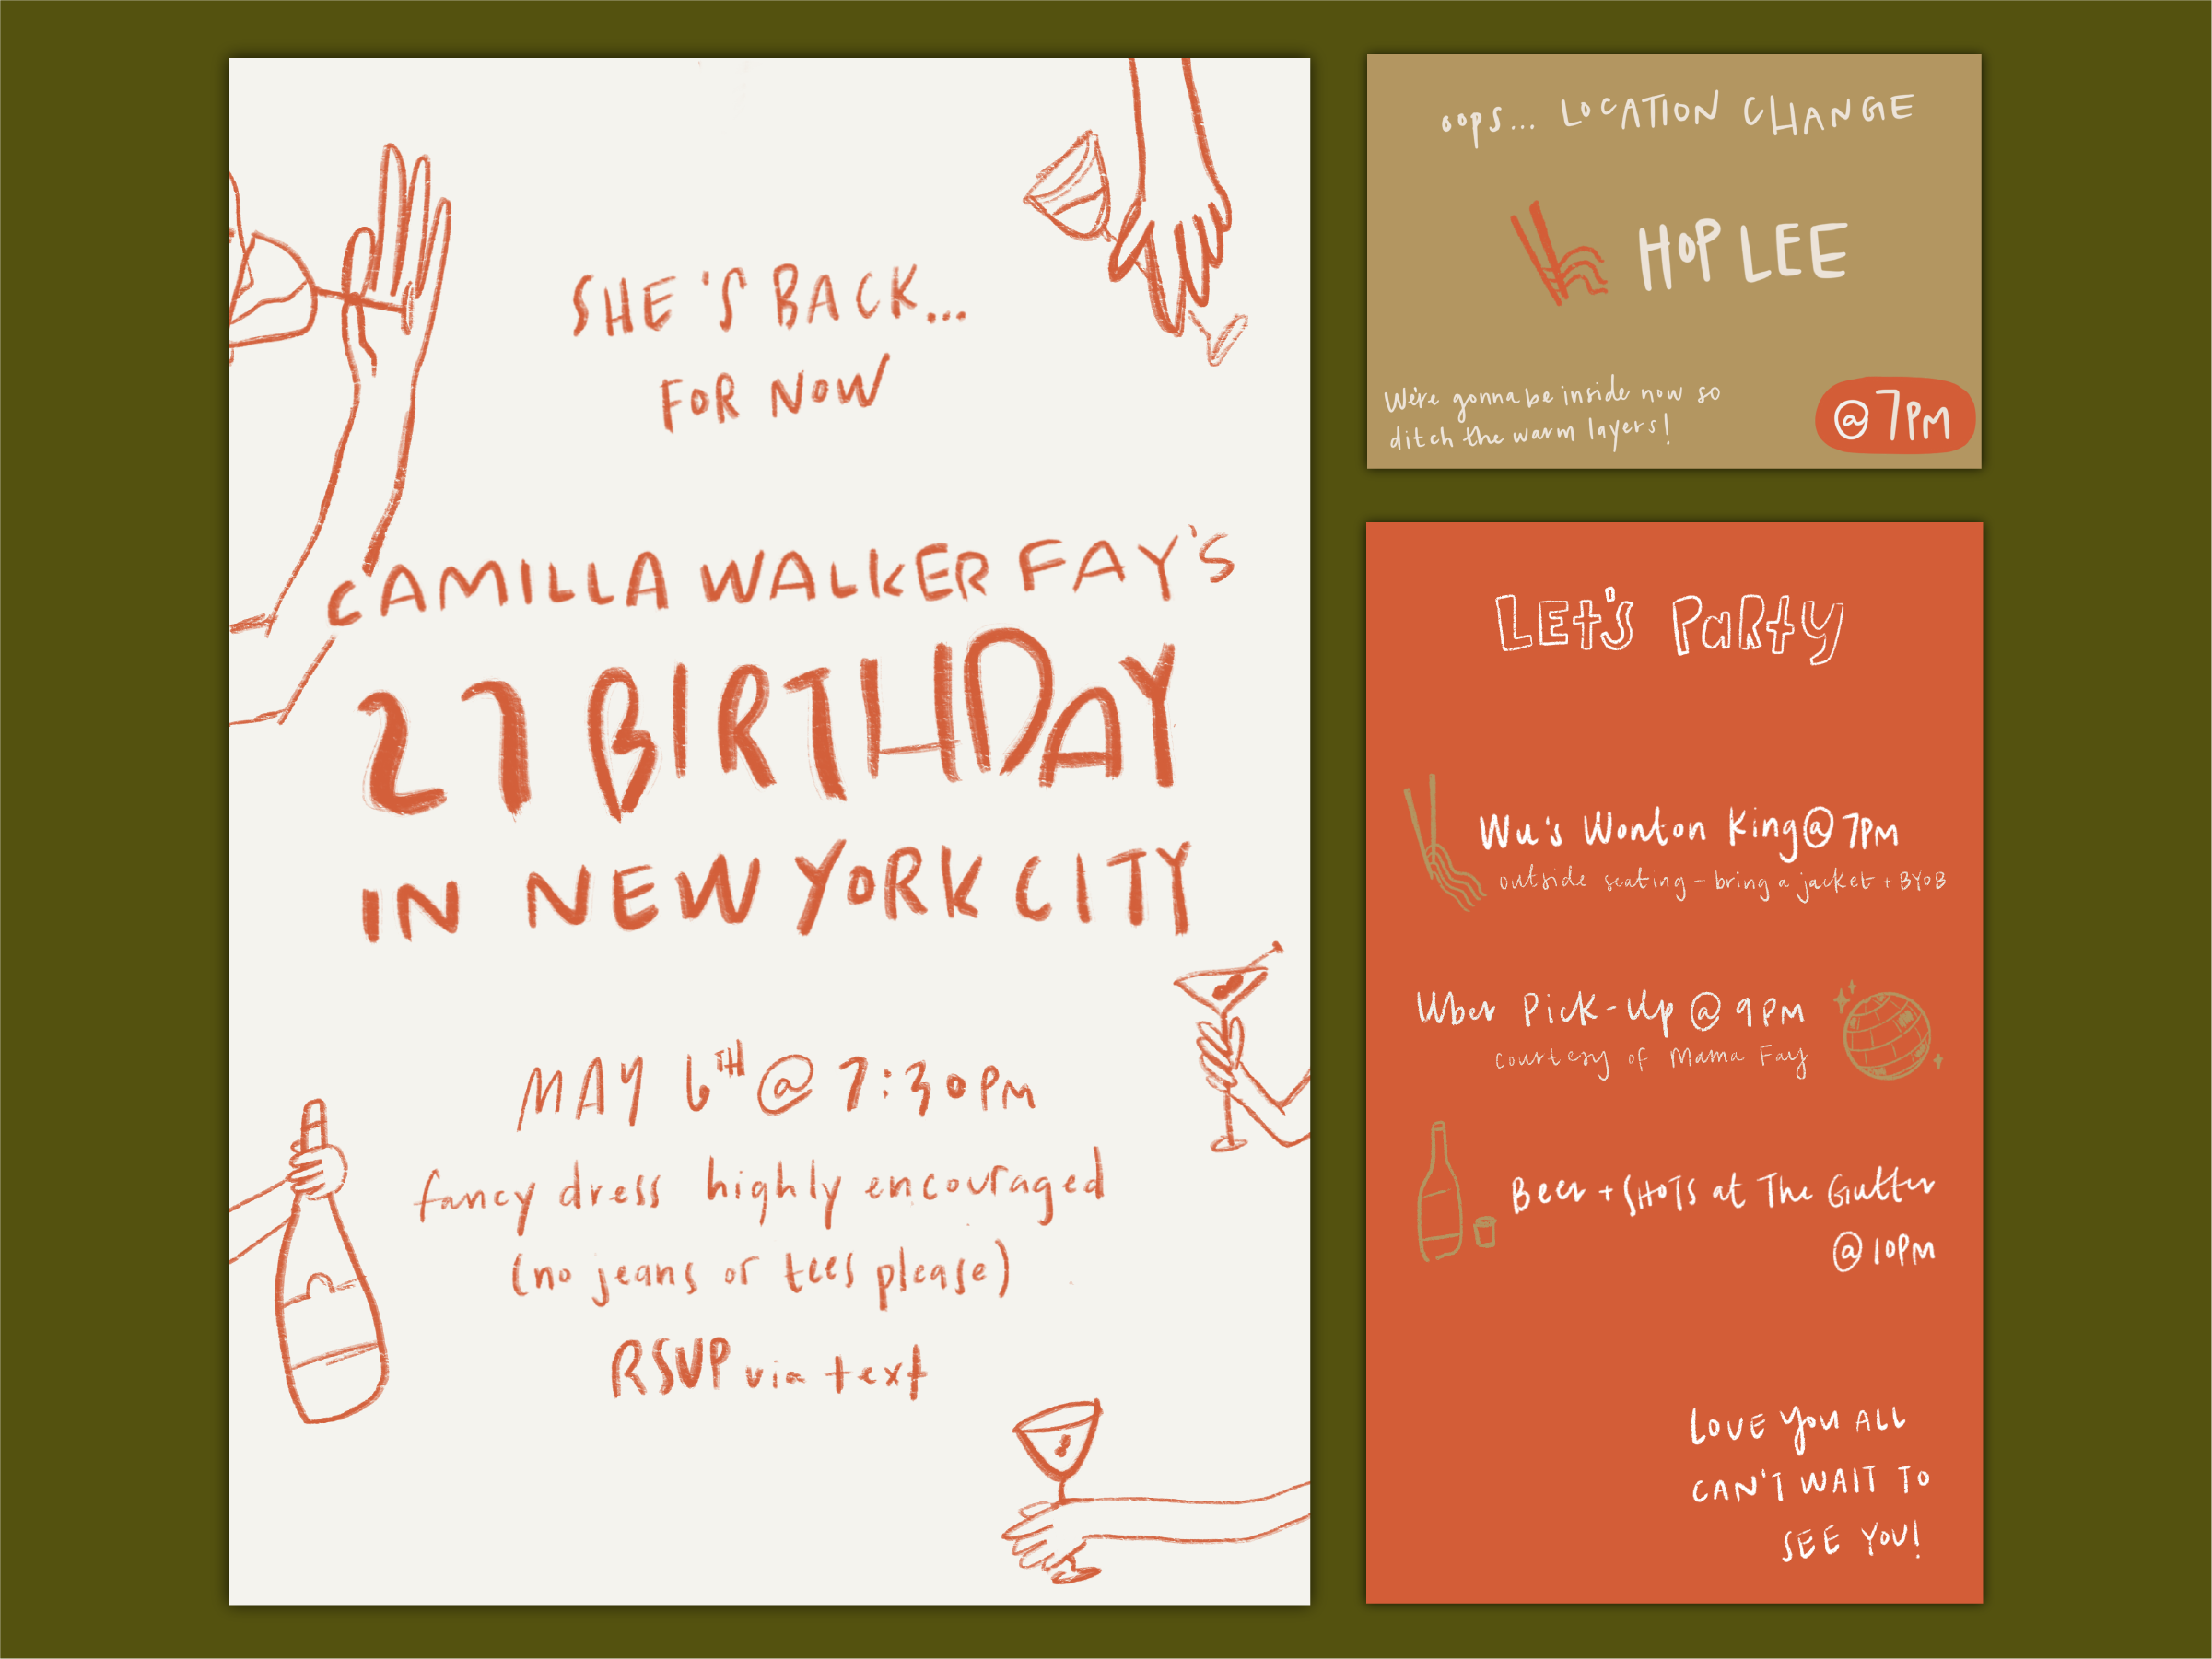 SHE'S BACK...
FOR NOW
CAMILLA WALKER FAY'S
27 BIRTHDAY
IN NEW YORK CITY
MAY 6TH @ 7:30PM
fancy dress highly encouraged
(no jeans or tees please)
RSVP via text
oops... LOCATION CHANGE
HOP LEE
We're gonna be inside now so
ditch the warm layers!
@ 7PM
LEt'S PaRty
Wu's Wonton King @ 7PM
outside seating - bring a jacket + BYOB
Uber Pick-Up @ 9PM
courtesy of Mama Fay
Beer + SHOTS at The Gutter
@ 10PM
LOVE you ALL
CAN'T WAIT TO
SEE YOU!